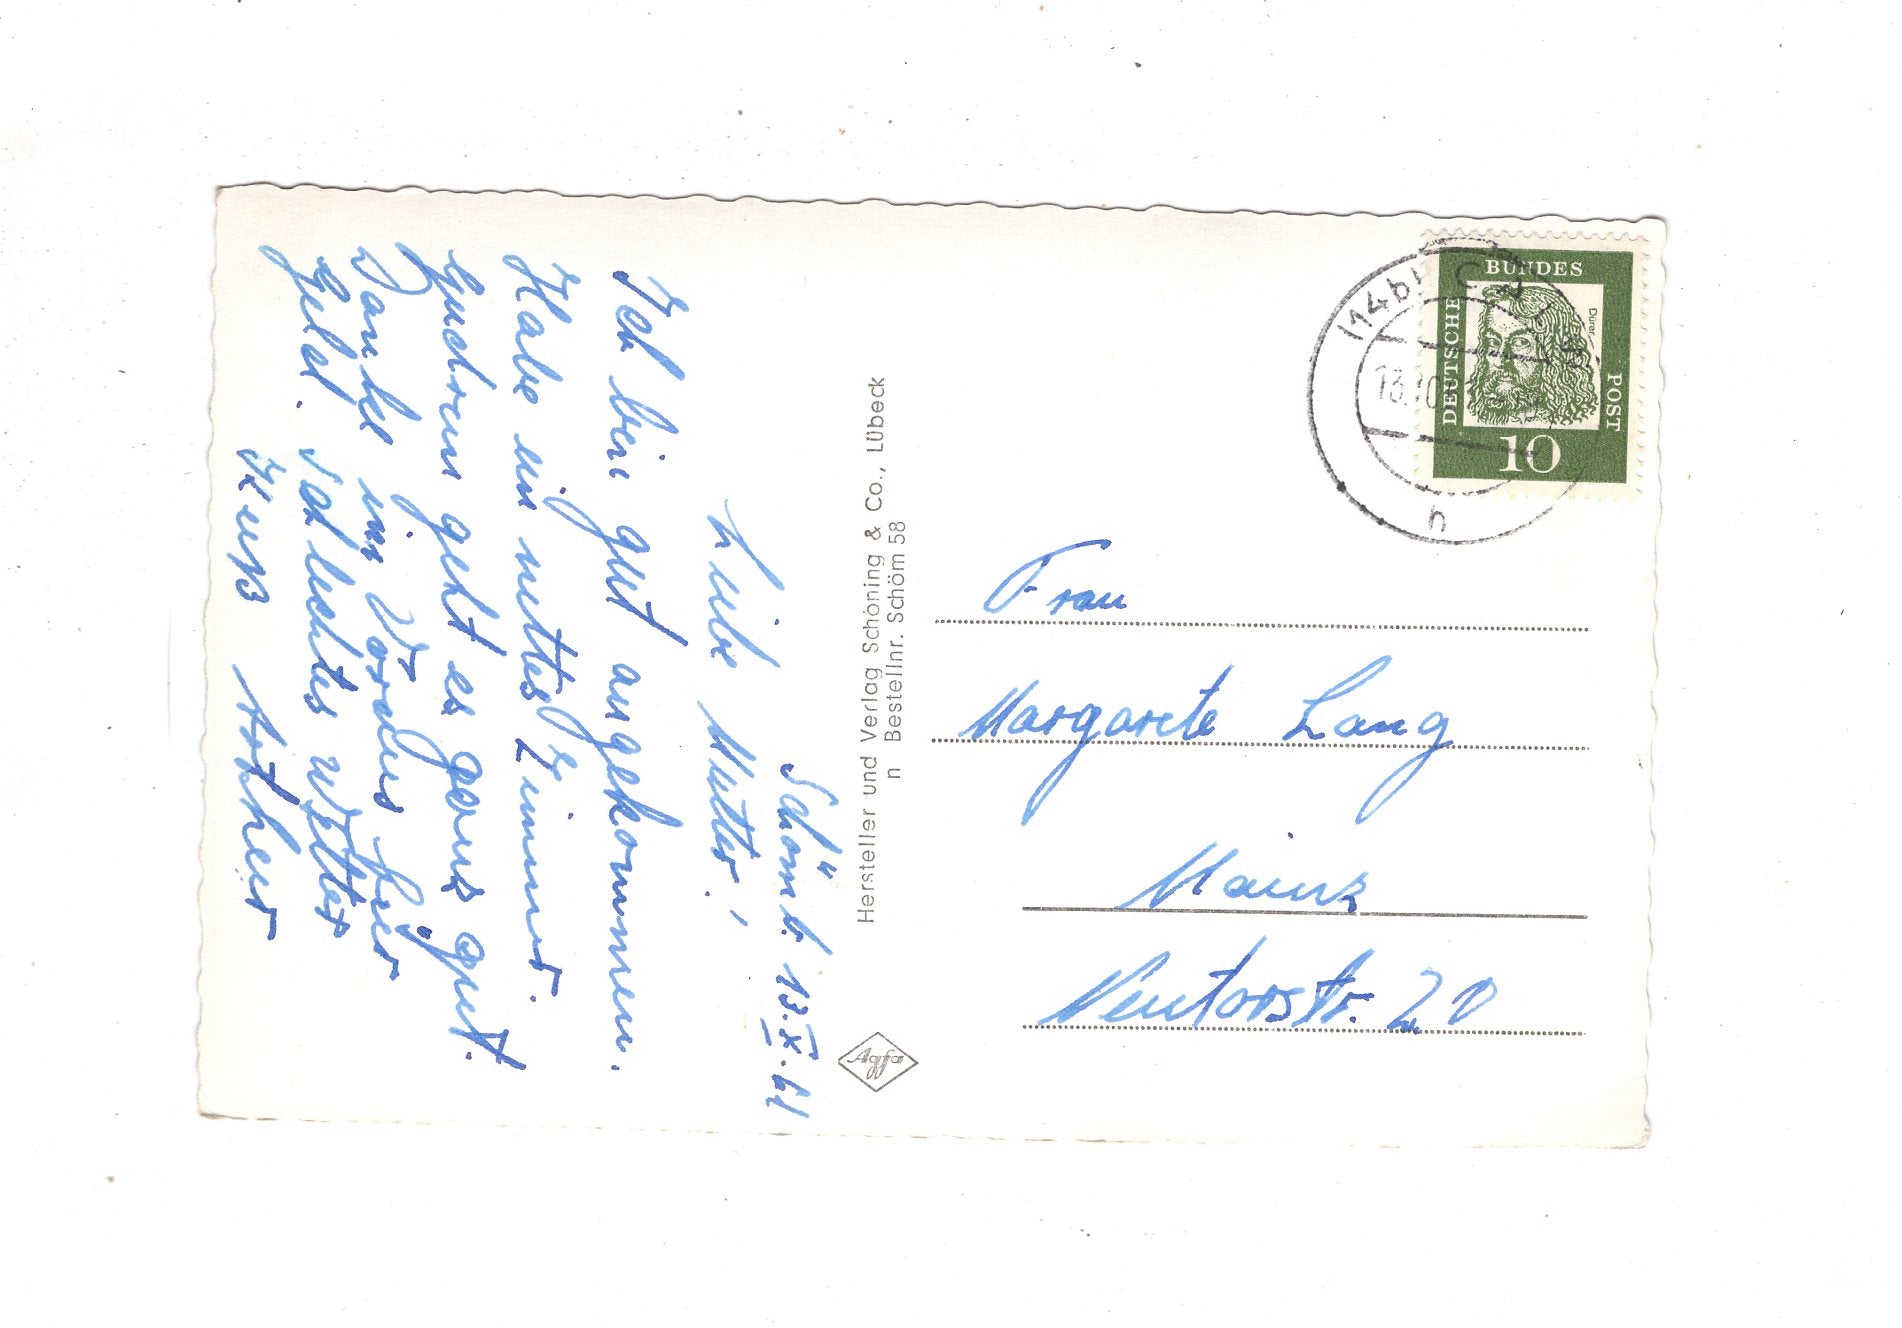 Schömb. 13.X.61
Liebe Mutter!
Ich bin gut angekommen.
Habe ein nettes Zimmer.
Gudrun geht es ganz gut.
Danke im Voraus für
Geld. Schlechtes Wetter hier
Kuß
Hersteller und Verlag Schöning & Co., Lübeck
n Bestellnr. Schöm 58
Agfa
(14b)
13.10.61
h
DEUTSCHE BUNDES POST
Dürer
10
Frau
Margarete Lang
Mainz
Neutorstr. 20